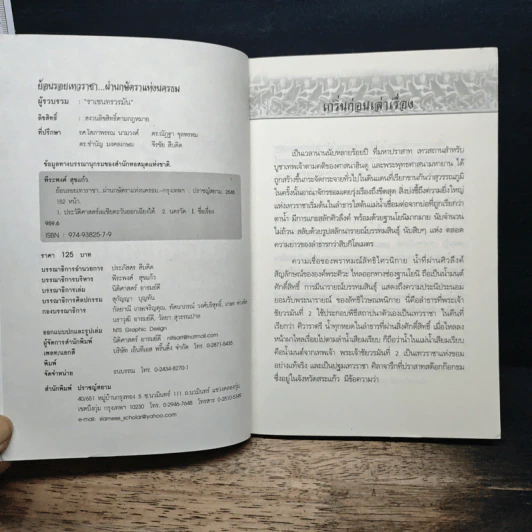 ย้อนรอยเทวราชา...ผ่านกษัตราแห่งนครธม
ผู้รวบรวม : "ราเชนทรวรมัน"
ลิขสิทธิ์ : สงวนลิขสิทธิ์ตามกฎหมาย
ที่ปรึกษา : รศ.โสภาพรรณ นามวงศ์ ดร.ณัฏฐา จุลพรหม
ดร.ชำนัญ มงคลเกษม จีรชัย สืบคิด
ข้อมูลทางบรรณานุกรมของสำนักหอสมุดแห่งชาติ.
พีระพงศ์ สุขแก้ว
ย้อนรอยเทวราชา...ผ่านกษัตราแห่งนครธม.--กรุงเทพฯ : ปราชญ์สยาม 2548
182 หน้า.
1. ประวัติศาสตร์เอเชียตะวันออกเฉียงใต้. 2. นครวัด I. ชื่อเรื่อง
959.6
ISBN : 974-93825-7-9
ราคา 125 บาท
บรรณาธิการอำนวยการ ประภัสตร สืบคิด
บรรณาธิการบริหาร พีระพงศ์ สุขแก้ว
บรรณาธิการเล่ม นิติศาสตร์ อารมย์ดี
บรรณาธิการศิลปกรรม สุกัญญา บุญทัน
กองบรรณาธิการ
ออกแบบปกและรูปเล่ม NTS Graphic Design
ผู้จัดการสำนักพิมพ์ นิติศาสตร์ อารมย์ดี nitisart@hotmail.com
เพลต/แยกสี
พิมพ์
จัดจำหน่าย
สำนักพิมพ์ ปราชญ์สยาม
e-mail: siamese_scholar@yahoo.com
เกริ่นก่อนเล่าเรื่อง
เป็นเวลานานนับหลายร้อยปี ที่มหาปราสาท เทวสถานสำหรับ
บูชาเทพเจ้าตามคติของศาสนาฮินดู และพระพุทธศาสนามหายาน ได้
ถูกสร้างขึ้นกระจัดกระจายทั่วไปในดินแดนที่เรียกขานกันว่าสุวรรณภูมิ
ในครั้งนั้นอาณาจักรขอมคงรุ่งเรืองถึงขีดสุด สิ่งบ่งชี้ถึงความยิ่งใหญ่
แห่งเทวราชาเริ่มต้นในลำธารใต้ต้นแม่น้ำเชื่อมต่อจากบ่อที่ถูกเรียกกว่า
ตาน้ำ มีการแกะสลักศิวลึงค์ พร้อมด้วยฐานโยนิมากมาย นับจำนวน
ไม่ถ้วน สลับด้วยรูปสลักนารายณ์บรรทมสินธุ์ นับสิบๆ แห่ง ตลอด
ความยาวของลำธารกว่าสิบกิโลเมตร
ความเชื่อของพราหมณ์ลัทธิไศวนิกาย น้ำที่ผ่านศิวลึงค์
สัญลักษณ์ของของพระศิวะ ไหลออกทางช่องฐานโยนี ถือเป็นน้ำมนต์
ศักดิ์สิทธิ์ การมีนารายณ์บรรทมสินธุ์ แสดงถึงความมีจิตประนีประนอม
ยอมกับพระนารายณ์ ของลัทธิไวษณพนิกาย นี่คือลำธารที่พระเจ้า
ชัยวรมันที่ 2 ใช้ประกอบพิธีสถาปนาตัวเองเป็นเทวราชา ในคืนที่
เรียกว่า ศิวาราตรี น้ำทุกหยดในลำธารที่ผ่านสิ่งศักดิ์สิทธิ์ เมื่อไหลลง
คือน้ำมนต์จากเทพเจ้า พระเจ้าชัยวรมันที่ 2 เป็นเทวราชาแห่งขอม
อย่างแท้จริง และเป็นปฐมเทวราชา ศิลาจารึกที่ปราสาทสด๊กก๊อกธม
ซึ่งอยู่ในจังหวัดสระแก้ว มีข้อความว่า